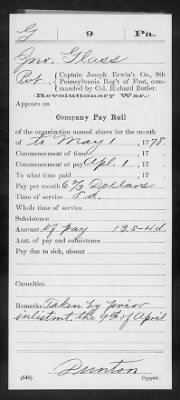 G | 9 | Pa.
Jno. Glass
Pvt., Captain Joseph Erwin's Co., 9th
Pennsylvania Reg't of Foot, com-
manded by Col. Richard Butler.
(Revolutionary War.)
Appears on
Company Pay Roll
of the organization named above for the month
of to May 1, 1778.
Commencement of time, 17
Commencement of pay Apl. 1, 17
To what time paid, 17
Pay per month 6 2/3 Dollars
Time of service 8 d.
Whole time of service
Subsistence
Amount of pay 13.5-4d.
Amt. of pay and subsistence
Pay due to sick, absent
Casualties
Remarks: Taken by prior
inlistmt the 9th of April
Dunton
(545) Copyist.